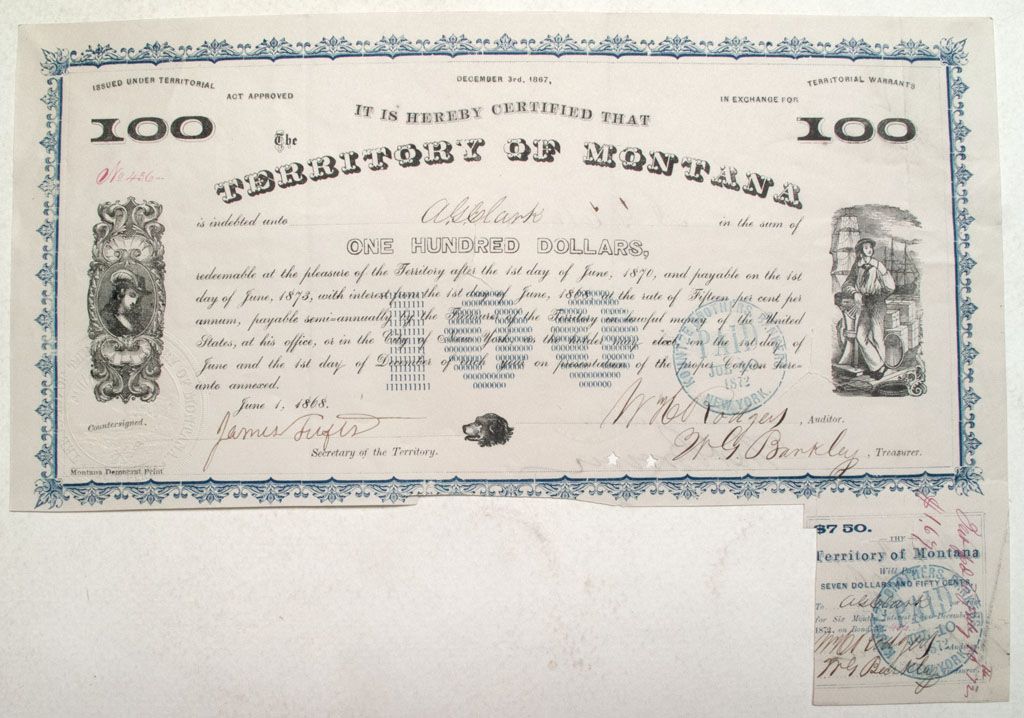 ISSUED UNDER TERRITORIAL
ACT APPROVED
DECEMBER 3rd, 1867,
IN EXCHANGE FOR
TERRITORIAL WARRANTS
100
100
IT IS HEREBY CERTIFIED THAT
The
TERRITORY OF MONTANA
No 426
is indebted unto A L Clark in the sum of
ONE HUNDRED DOLLARS,
redeemable at the pleasure of the Territory after the 1st day of June, 1870, and payable on the 1st
day of June, 1873, with interest from the 1st day of June, 1868, at the rate of Fifteen per cent per
annum, payable semi-annually by the Treasurer of the Territory in lawful money of the United
States, at his office, or in the City of New York, as the holder may elect, on the 1st day of
June and the 1st day of December of each year on presentation of the proper Coupon here-
unto annexed.
100
PAID
1872
NEW YORK
June 1, 1868.
Countersigned.
James Tufts
Secretary of the Territory.
W H Rodgers, Auditor.
W. G. Barkley, Treasurer.
Montana Democrat Print
$7 50.
THE
Territory of Montana
Will Pay
SEVEN DOLLARS AND FIFTY CENTS
To A L Clark
for Six Months Interest due December
1872, on Bond
W H Rodgers
W G Barkley
PAID
10
NEW YORK
$1.67